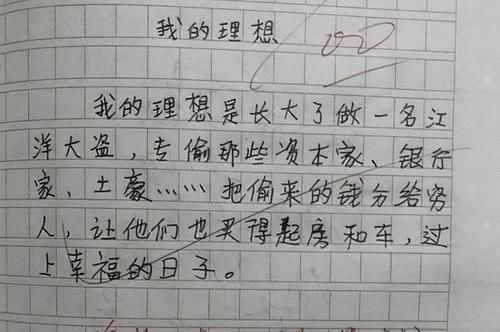 我的理想
我的理想是长大了做一名江
洋大盗，专偷那些资本家、银行
家、土豪……把偷来的钱分给穷
人，让他们也买得起房和车，过
上幸福的日子。